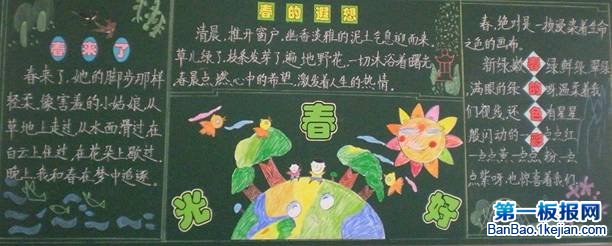 春来了
春来了,她的脚步那样
轻柔,像害羞的小姑娘,从
草地上走过,从水面滑过,在
白云上住过,在花朵上歇过。
晚上,我和春在梦中追逐。
春的遐想
清晨,推开窗户,幽香淡雅的泥土气息迎面来。
草儿绿了,枝条发芽了,遍地野花,一切沐浴着曙光
春景点燃心中的希望,激发着人生的热情。
春光好
春,绝对是一块渲染着生命
之色的画布。
新绿、嫩绿、鲜绿、翠绿
满眼的绿呀,温柔着我
们视线,还有星星
般闪动的
一点点红
一点点黄一点点粉一点
点紫呀,也惊喜着我们。
第一板报网
BanBao.1kejian.com